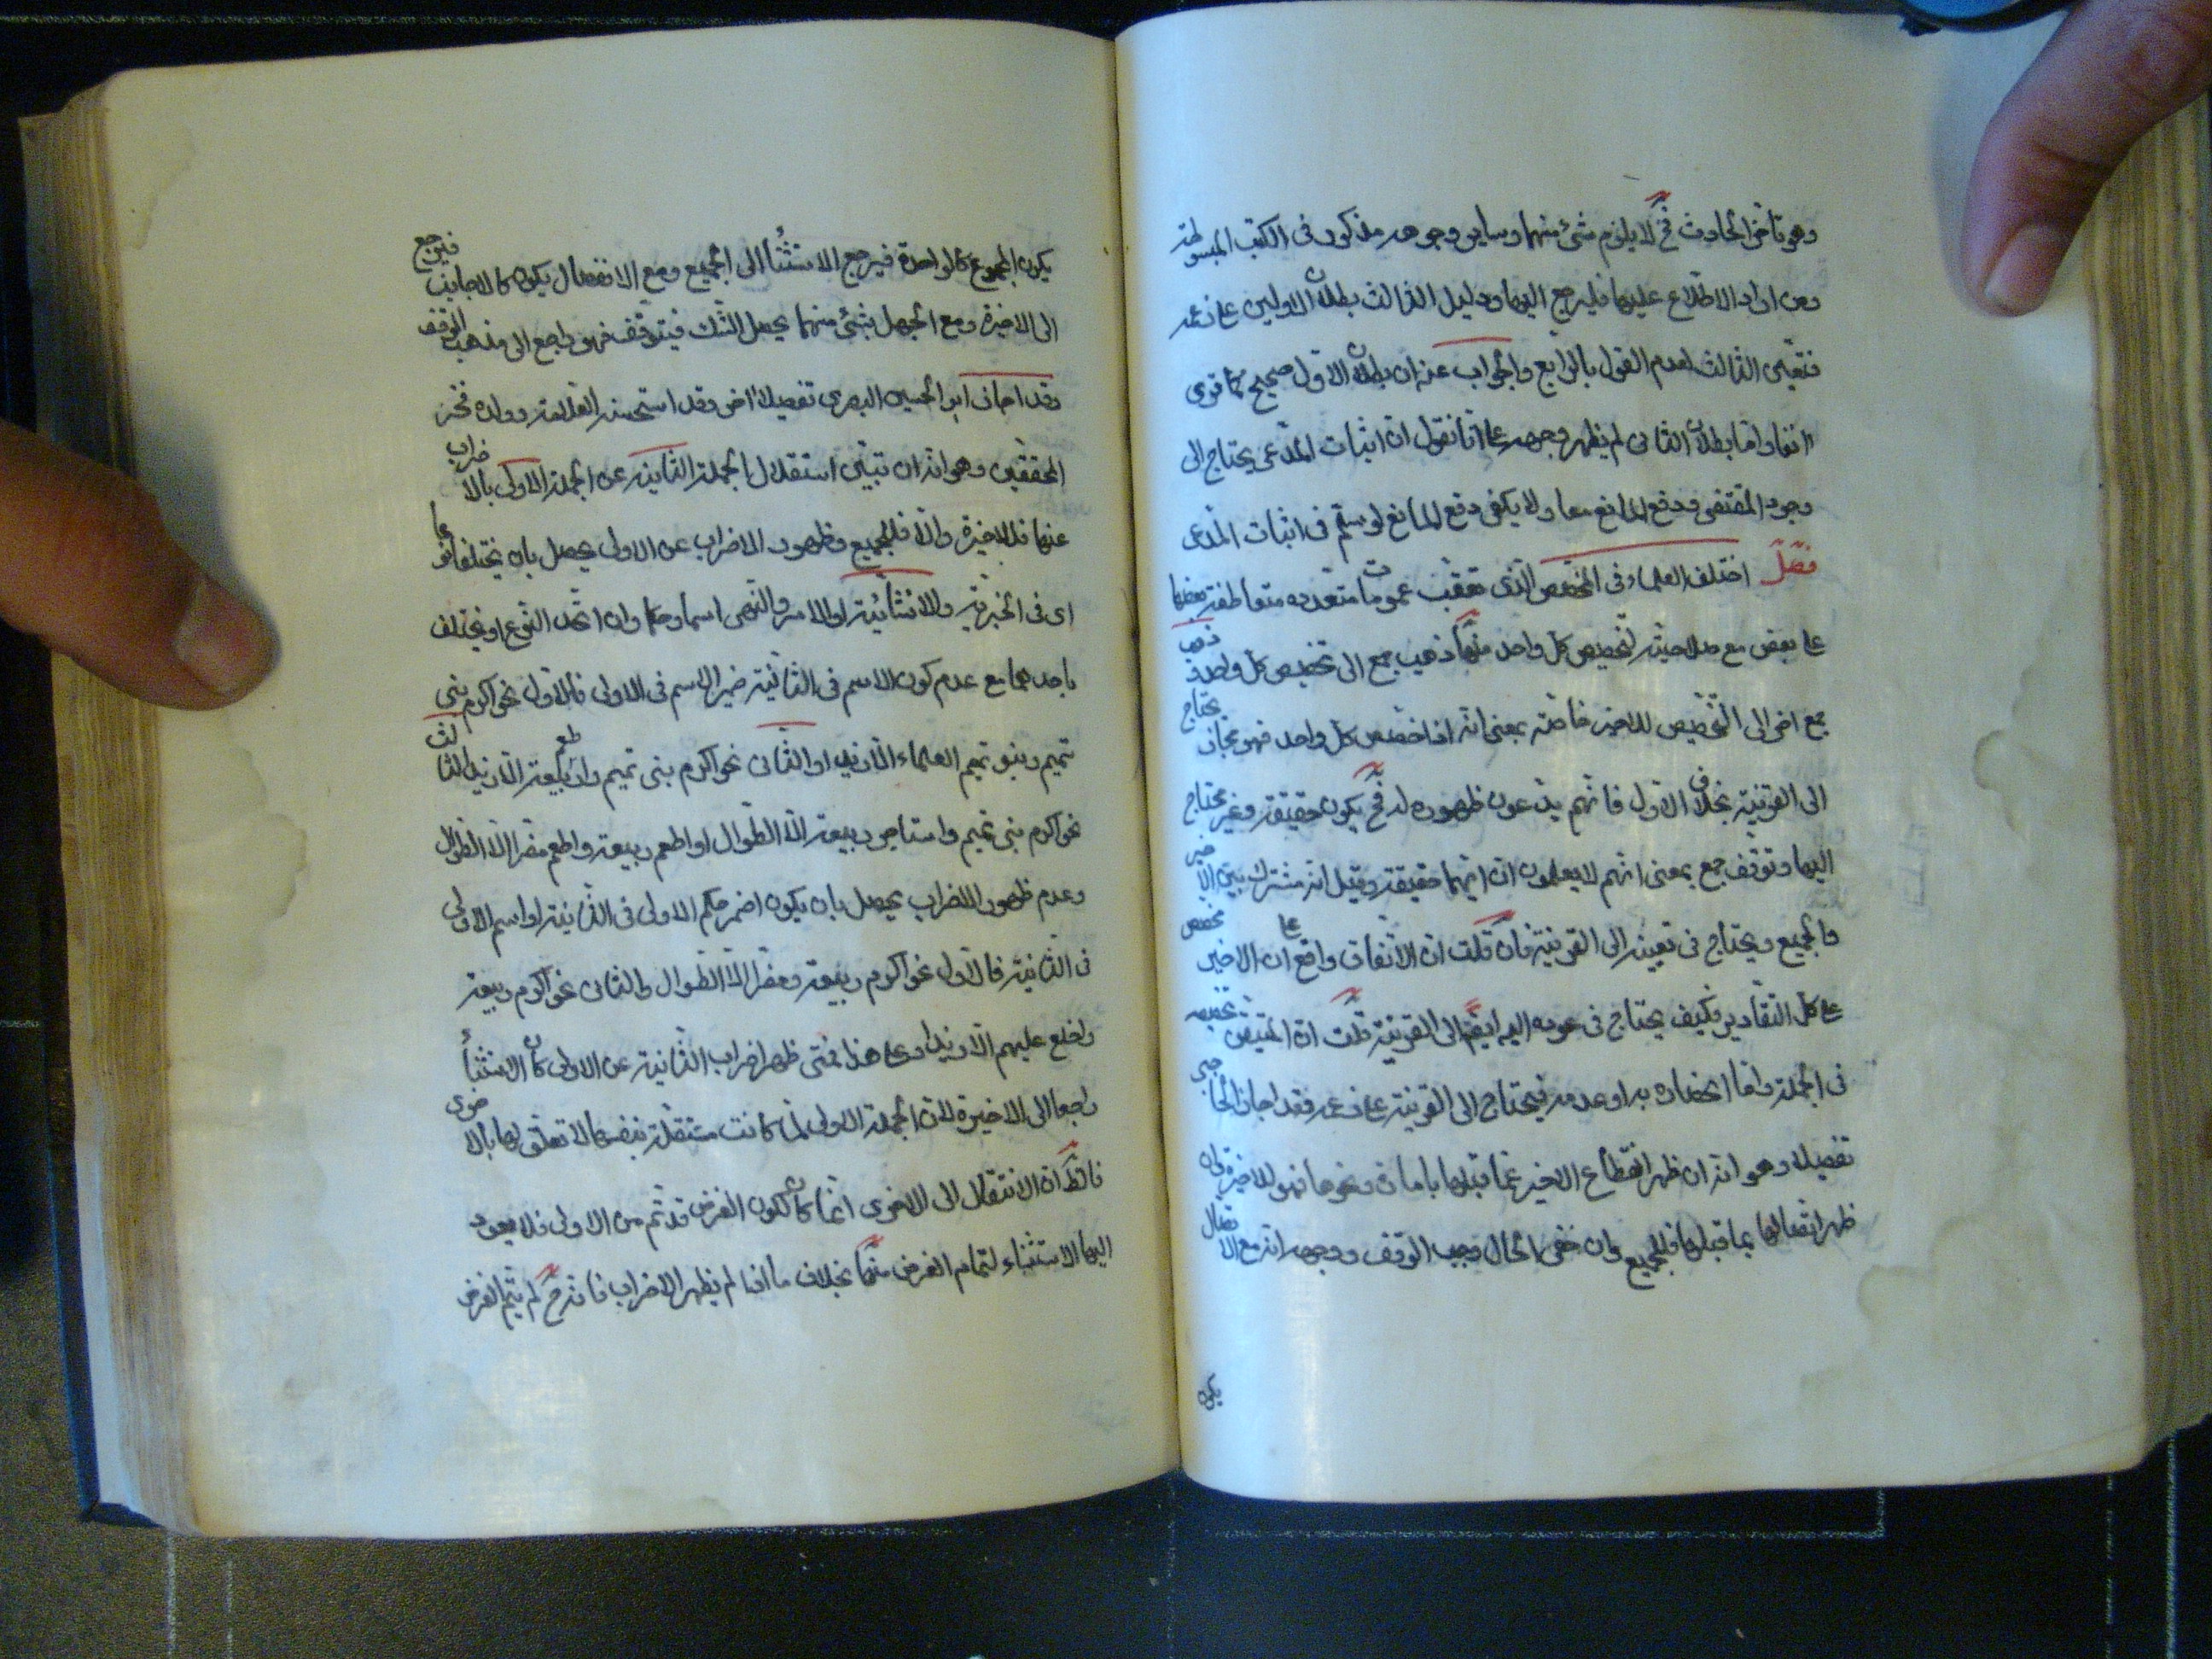 وهو تأخر الحادث فح لا يلزم شئ منهما وساير وجوهه مذكور فى الكتب المبسوطة
ومن اراد الاطلاع عليها فليرجع اليها ودليل الثالث بطلان الاولين على زعمه
فتعين الثالث لعدم القول بالرابع والجواب عنه ان بطلان الاول صحيح كما قرى
انفا واما بطلان الثانى لم يظهر وجهه على انا نقول ان اثبات المدعى يحتاج الى
وجود المقتضى ودفع المانع معا ولا يكفى دفع المانع لو سلم فى اثبات المدعى
فصل اختلف العلماء فى المخصص الذى تعقب عمومات متعدده متعاطفة بعضها
على بعض مع صلاحيته لتخصيص كل واحد منها فذهب جمع الى تخصيص كل واحد وذهب
جمع اخر الى التخصيص للاخير خاصة بمعنى انه اذا خصص كل واحد فهو مجاز يحتاج
الى القرينة بخلاف الاول فانهم يدعون ظهوره له فح يكون حقيقة وغير محتاج
اليها وتوقف جمع بمعنى انهم لا يعلمون ان ايهما حقيقة وقيل انه مشترك بين الاخير
والجميع ويحتاج فى تعيينه الى القرينة فان قلت ان الاتفاق واقع على ان الاخير مخصص
على كل التقادير فكيف يحتاج فى عوده اليه ايضا الى القرينة قلت ان المتيقن تخصيصه
فى الجملة واما انحصاره به او عدمه فيحتاج الى القرينة على زعمه فقد اجاز الحاجبى
تفصيلا وهو انه ان ظهر انقطاع الاخير عما قبلها بامارة ونحوها فهو للاخيرة وان
ظهر اتصالها بما قبلها فللجميع وان خفى الحال وجب الوقف ووجهه انه مع الاتصال
يكون
يكون المجموع كالواحدة فيرجع الاستثناء الى الجميع ومع الانفصال يكون كالاجانب فيرجع
الى الاخيرة ومع الجهل بشئ منهما يحصل الشك فيتوقف فهو راجع الى مذهب الوقف
وقد اجاز ابو الحسين البصرى تفصيلا اخر وقد استحسنه العلامة وولده فخر
المحققين وهو انه ان تبين استقلال الجملة الثانية عن الجملة الاولى بالاضراب
عنها فللاخيرة والا فللجميع وظهور الاضراب عن الاولى يحصل بان يختلفا نوعا
اى فى الخبرية والانشائية او الامر والنهى اسما وحكما وان اتحد النوع او يختلف
باحدهما مع عدم كون الاسم فى الثانية ضمير الاسم فى الاولى فالاول نحو اكرم بنى
تميم وبنو تميم العلماء الا زيد او الثانى نحو اكرم بنى تميم واطع ربيعة الا زيد الثالث
نحو اكرم بنى تميم واستاجر ربيعة الا الطوال او اطعم ربيعة واطعم مضر الا الطوال
وعدم ظهور الاضراب يحصل بان يكون اضمر حكم الاولى فى الثانية او اسم الاولى
فى الثانية فالاول نحو اكرم ربيعة ومضر الا الطوال والثانى نحو اكرم ربيعة
واخلع عليهم الا زيدا وعلى هذا فمتى ظهر اضراب الثانية عن الاولى كان الاستثناء
راجعا الى الاخيرة لان الجملة الاولى لما كانت مستقلة بنفسها لا تعلق لها بالاخرى
فالظ ان الانتقال الى الاخرى انما كان لكون الغرض قد تم من الاولى فلا يعود
اليها الاستثناء لتمام الغرض منها بخلاف ما اذا لم يظهر الاضراب فانه ح لم يتم الغرض